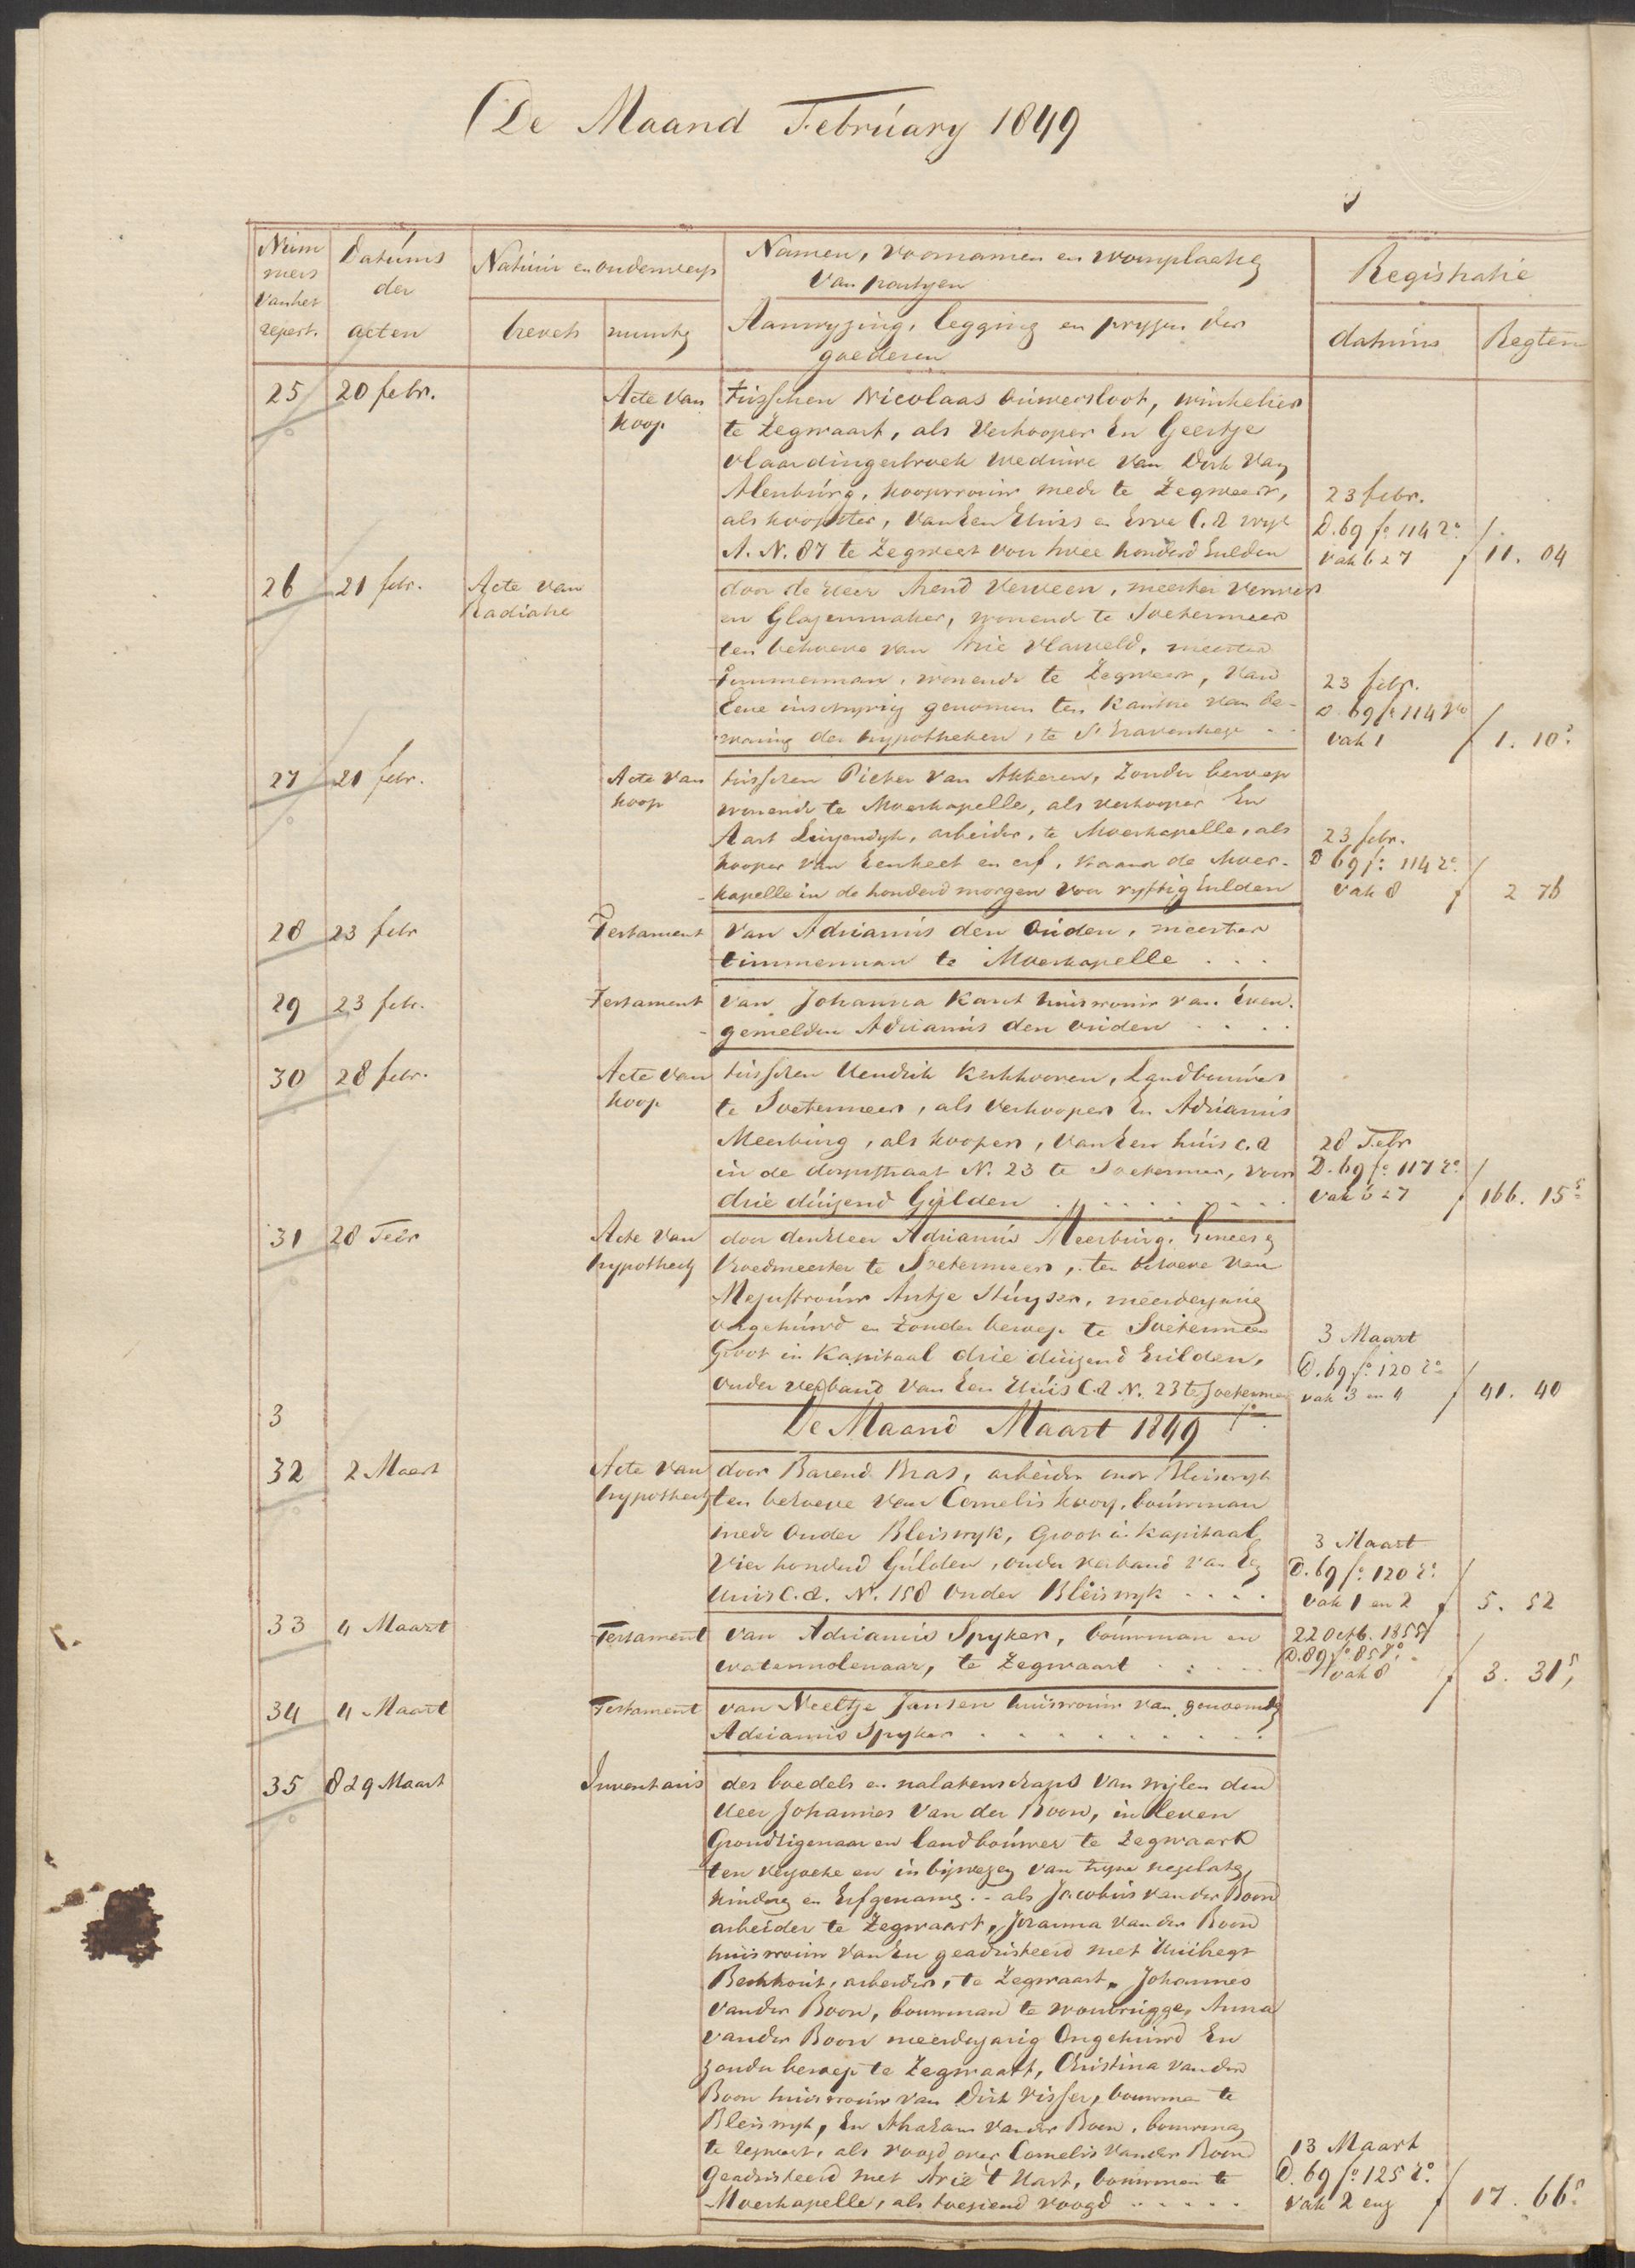 De Maand Február̈y 1849
Num
mers
van het
repert.
Datums
der
acten
Natuur en onderwerp
brevets
minuten
Namen, voornamen en woonplaatsen
van partyen
Aanwyzing, legging en pryzen der
goederen
Registratie
datums
Regten
25 20 febr. Acte van
koop
tusschen Nicolaas Ouwersloot, winkelier
te Zegwaart, als Verkooper En Geertje
Vlaardingerbroek Weduwe van Dirk van
Alenburg, koopvrouw mede te Zegwaart,
als koopster, van Een Huis en Erve C.a wyk
A. N. 87 te Zegwaart voor twee honderd Gulden
23 febr.
D. 69 fo 114 ro
vak 6 & 7 f 11. 04
26 21 febr. Acte van
Radiatie
door de Heer Arend Verveen, meester Verwer
en Glazenmaker, wonende te Soetermeer
ten behoeve van Arie Vlasveld, meester
Timmerman, wonende te Zegwaart, van
Eene inschryving genomen ten Kantore van be-
waring der hypotheken, te S Gravenhage
23 febr.
D. 69 fo 114 vo
vak 1 f 1. 10 5
27 21 febr. Acte van
koop
tusschen Pieter van Akkeren, zonder beroep
wonende te Moerkapelle, als verkooper En
Aart Luijendyk, arbeider, te Moerkapelle, als
kooper van Een keet en erf, staande Moer-
kapelle in de honderd morgen voor vyftig Gulden
23 febr.
D 69 fo 114 ro
vak 8 f 2 76
28 23 febr Testament
van Adrianus den Ouden, meester
timmerman te Moerkapelle . . .
29 23 febr. Testament
van Johanna Kant huisvrouw van Even-
gemelden Adrianus den Ouden . . . .
30 28 febr. Acte van
koop
tusschen Hendrik Kerkhoven, Landbouwer
te Soetermeer, als Verkooper En Adrianus
Meerburg, als kooper, van Een huis c.a
in de dorpstraat N. 23 te Soetermeer, voor
drie duizend Gulden . . . . . . . .
28 Febr
D. 69 fo 117 ro
vak 6 & 7 f 166. 15 5
31 28 Febr Acte van
hypotheek
door den Heer Adrianus Meerburg, Genees en
Vroedmeester te Soetermeer, ten behoeve van
Mejuffrouw Antje Stuyser, meerderjarig
ongehuwd en zonder beroep te Soetermeer
Groot in Kapitaal drie duizend Gulden,
onder verband van Een Huis C.a N. 23 te Soetermeer
3 Maart
D. 69 fo 120 ro
vak 3 en 4 f 41. 40
3
De Maand Maart 1849
32 2 Maart Acte van
hypotheek
door Barend Bras, arbeider onder Bleiswyk
ten behoeve van Cornelis Kooy, bouwman
mede onder Bleiswyk, groot in kapitaal
Vier honderd Gulden, onder verband van Een
Huis C.a. N. 158 onder Bleiswyk . . . .
3 Maart
D. 69 fo 120 ro
vak 1 en 2 f 5. 52
33 4 Maart Testament
van Adrianus Spyker, bouwman en
watermolenaar, te Zegwaart . . . .
22 Octb. 1855
D. 89 fo 85 ro
vak 8 f 3. 31 5
34 4 Maart Testament
van Neeltje Jansen huisvrouw van genoemden
Adrianus Spyker . . . . . . . . .
35 8 & 9 Maart Inventaris
des boedels en nalatenschaps van wylen den
Heer Johannes van der Boon, in leven
Grondeigenaar en landbouwer te Zegwaart
ten verzoeke en in bijwezen van zyne nagelaten
kinderen en Erfgenamen . - als Jacobus van der Boon
arbeider te Zegwaart, Johanna van der Boon
huisvrouw van En geadsisteerd met Huibregt
Berkhout, arbeider, te Zegwaart, Johannes
van der Boon, bouwman te Woubrugge, Anna
van der Boon meerderjarig Ongehuwd En
zonder beroep te Zegwaart, Christina van der
Boon huisvrouw van Dirk Visser, bouwman te
Bleiswyk, En Abraham van der Boon, bouwman
te Zegwaart, als voogd over Cornelis van der Boon
Geadsisteerd met Arie 't Hart, bouwman te
Moerkapelle, als toeziend voogd . . . . .
13 Maart
D. 69 fo 125 ro
vak 2 env f 17. 66 5